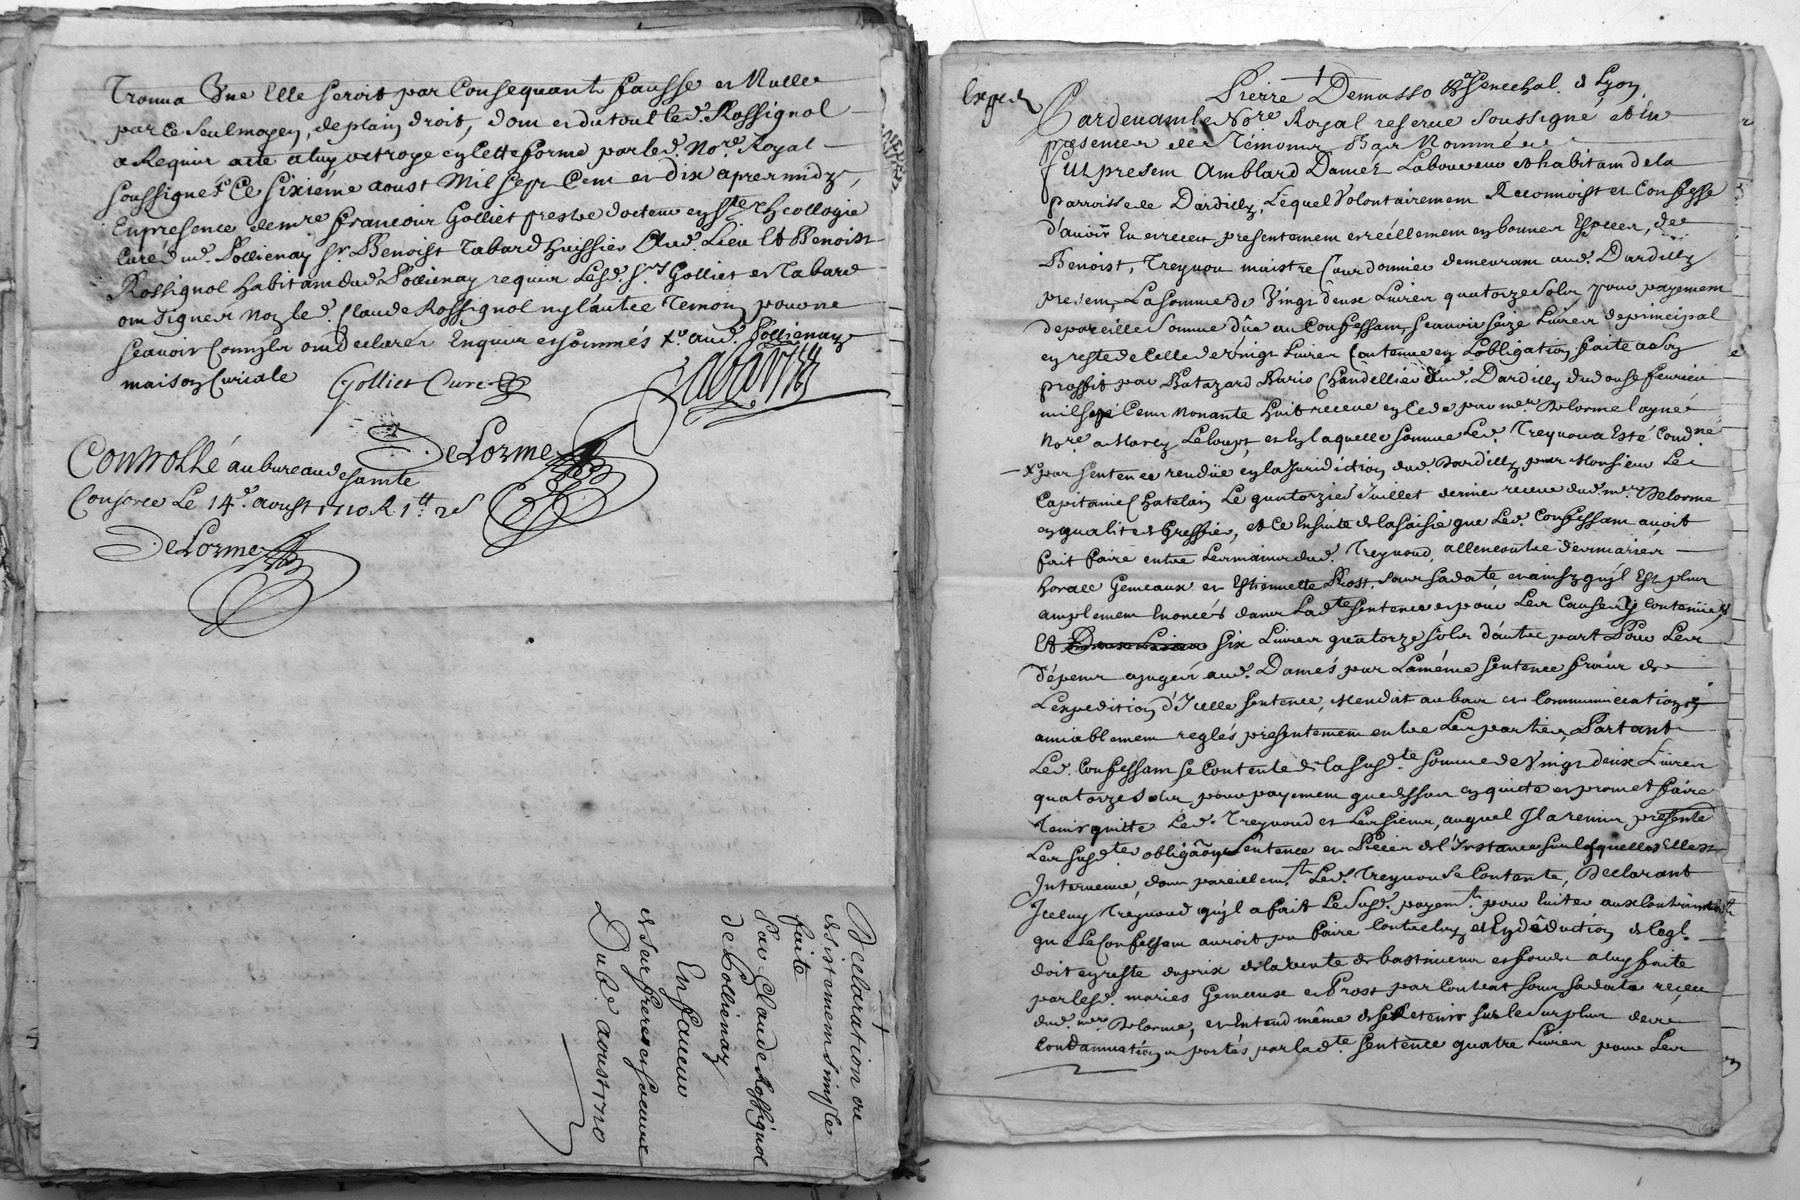 trouva Une Elle seroit par Consequant fausse et Nulle
par ce seul moyen, de plain droit, dont et du tout led. Rossignol
a Requis acte a luy octroyé en Cette forme par led. No.re Royal
soussigné Ce sixieme aoust Mil sept Cent et dix apres midy,
En presence de m.re francois Golliet prestre docteur en s.te theollogie
Curé dud. Pollienay s.r Benoist Tabard huissier dud. Lieu Et Benoist
Rossignol habitant dud. Pollienay requis Lesd. s.rs Golliet et Tabard
ont signé non led. Claude Rossignol ny l'autre temoin pour ne
scavoir Comme ils ont declaré Enquis et sommés aud. Pollienay
maison Curiale
Golliet Curé
Tabard
DeLorme
Controllé au bureau de sainte
Consorce Le 14.e aoust 1710 R 1.tt 2s
DeLorme
Declaration et
desistement simple
faite
Par Claude Rossignol
de Pollienay
En faveur
de ses freres et soeurs
Du 6.e aoust 1710
Exped.
Pierre Demasso senechal de Lyon
Pardevant le No.re Royal reservé soussigné et En
presence des Témoins Bas Nommés
fut present Amblard Damés Laboureur et habitant de la
parroisse de Dardilly, Lequel Volontairement Reconnoist et Confesse
d'avoir Eu et receu presentement et réellement en bonnes Especes, de
Benoist, Treynou maistre Cordonnier demeurant aud. Dardilly
present, La somme de Vingt deux Livres quatorze sols pour payement
de pareille somme dûe au Confessant, scavoir seize Livres de principal
en reste de Celle de Vingt Livres Contenue en L'obligation faite a son
proffit par Batazard Chandellier dud. Dardilly du douse feuvrier
mil sept Cent Nonante huit receue en Cede par m.re Delorme l'ayné
No.re a Marcy Le loup, et En laquelle somme Led. Treynou a Esté Cond.né
par sentence rendüe en la Juridiction dud. Dardilly par Monsieur Le
Capitaine Chatelain Le quatorzie Juillet dernier receue dud. m.re Delorme
en qualité de Greffier, et Ce Ensuite de la saisie que Led. Confessant avoit
fait faire entre Les mains dud. Treynoud, allencontre des mariés
horace Gemeaux et Estiennette Prost sous sa date, et ainsy qu'il Est plus
amplement Enoncés dans Lad.te sentence et pour Les Causes y contenües
Et six Livres quatorze sols d'autre part Pour Les
d'épens ajugés aud. Damés par La même sentence frais de
L'expedition d'Icelle sentence, et
amiablement reglés presentement entre Les parties, Partant
Led. Confessant se Contente de la susd.te somme de Vingt deux Livres
quatorze sols, pour payement que dessus en quitte et promet faire
tenir quitte Led. Treynoud et Les siens, auquel Il a remis presente
Les susd.tes obligâon sentence et Pieces de l'Instance sur lesquelles Elle est
Intervenue, dont pareillem.t Led. Treynou se Contante, Declarant
Iceluy Tréynoud qu'il a fait Le susd. payem.t pour Eviter aux Contraintes
que Le Confessant auroit pu faire Contre luy et En déduction de
doit en reste du prix de la vente de bastiment et fonds a luy faite
par lesd. mariés Gemeaux et Prost par Contrat sous sa date receu
dud. m.re Delorme, et Entend même de se Retenir sur le surplus de
Condamnation portés par lad.te sentence quatre Livres pour Les